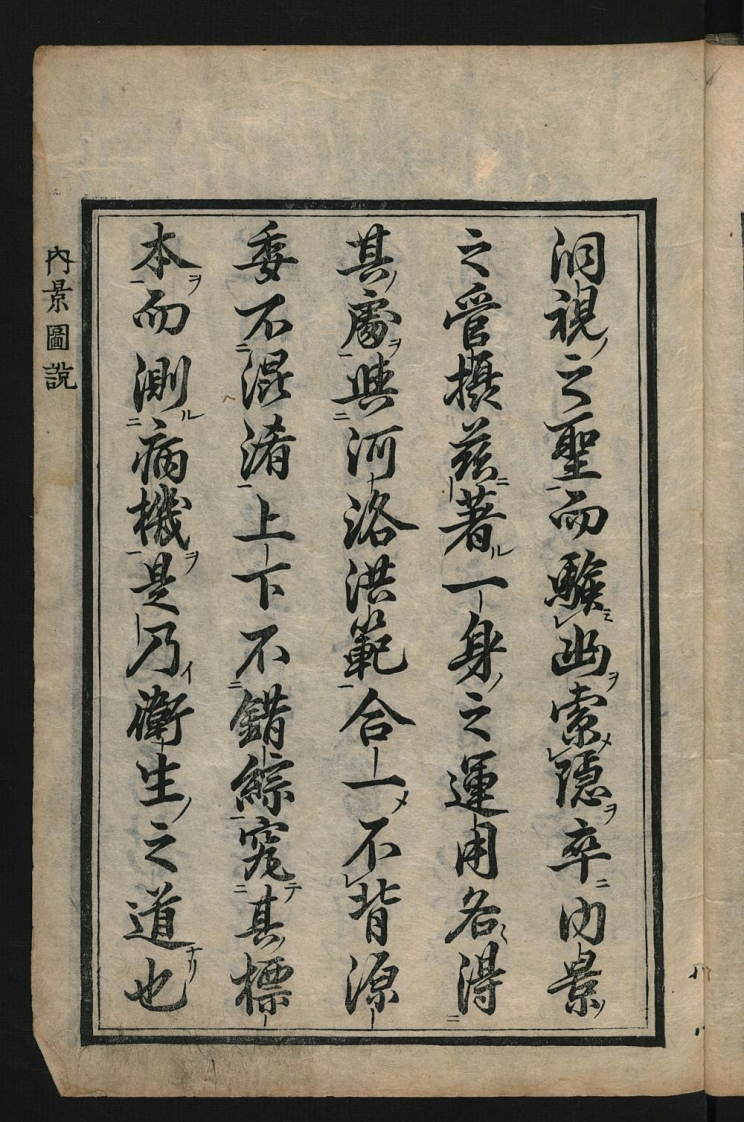 洞視之聖而驗幽索隱卒内景
之管攝玆著一身之運用各得
其處與河洛洪範合一不背源
委不混淆上下不錯綜究其標
本而測病機是乃衛生之道也
內景圖說